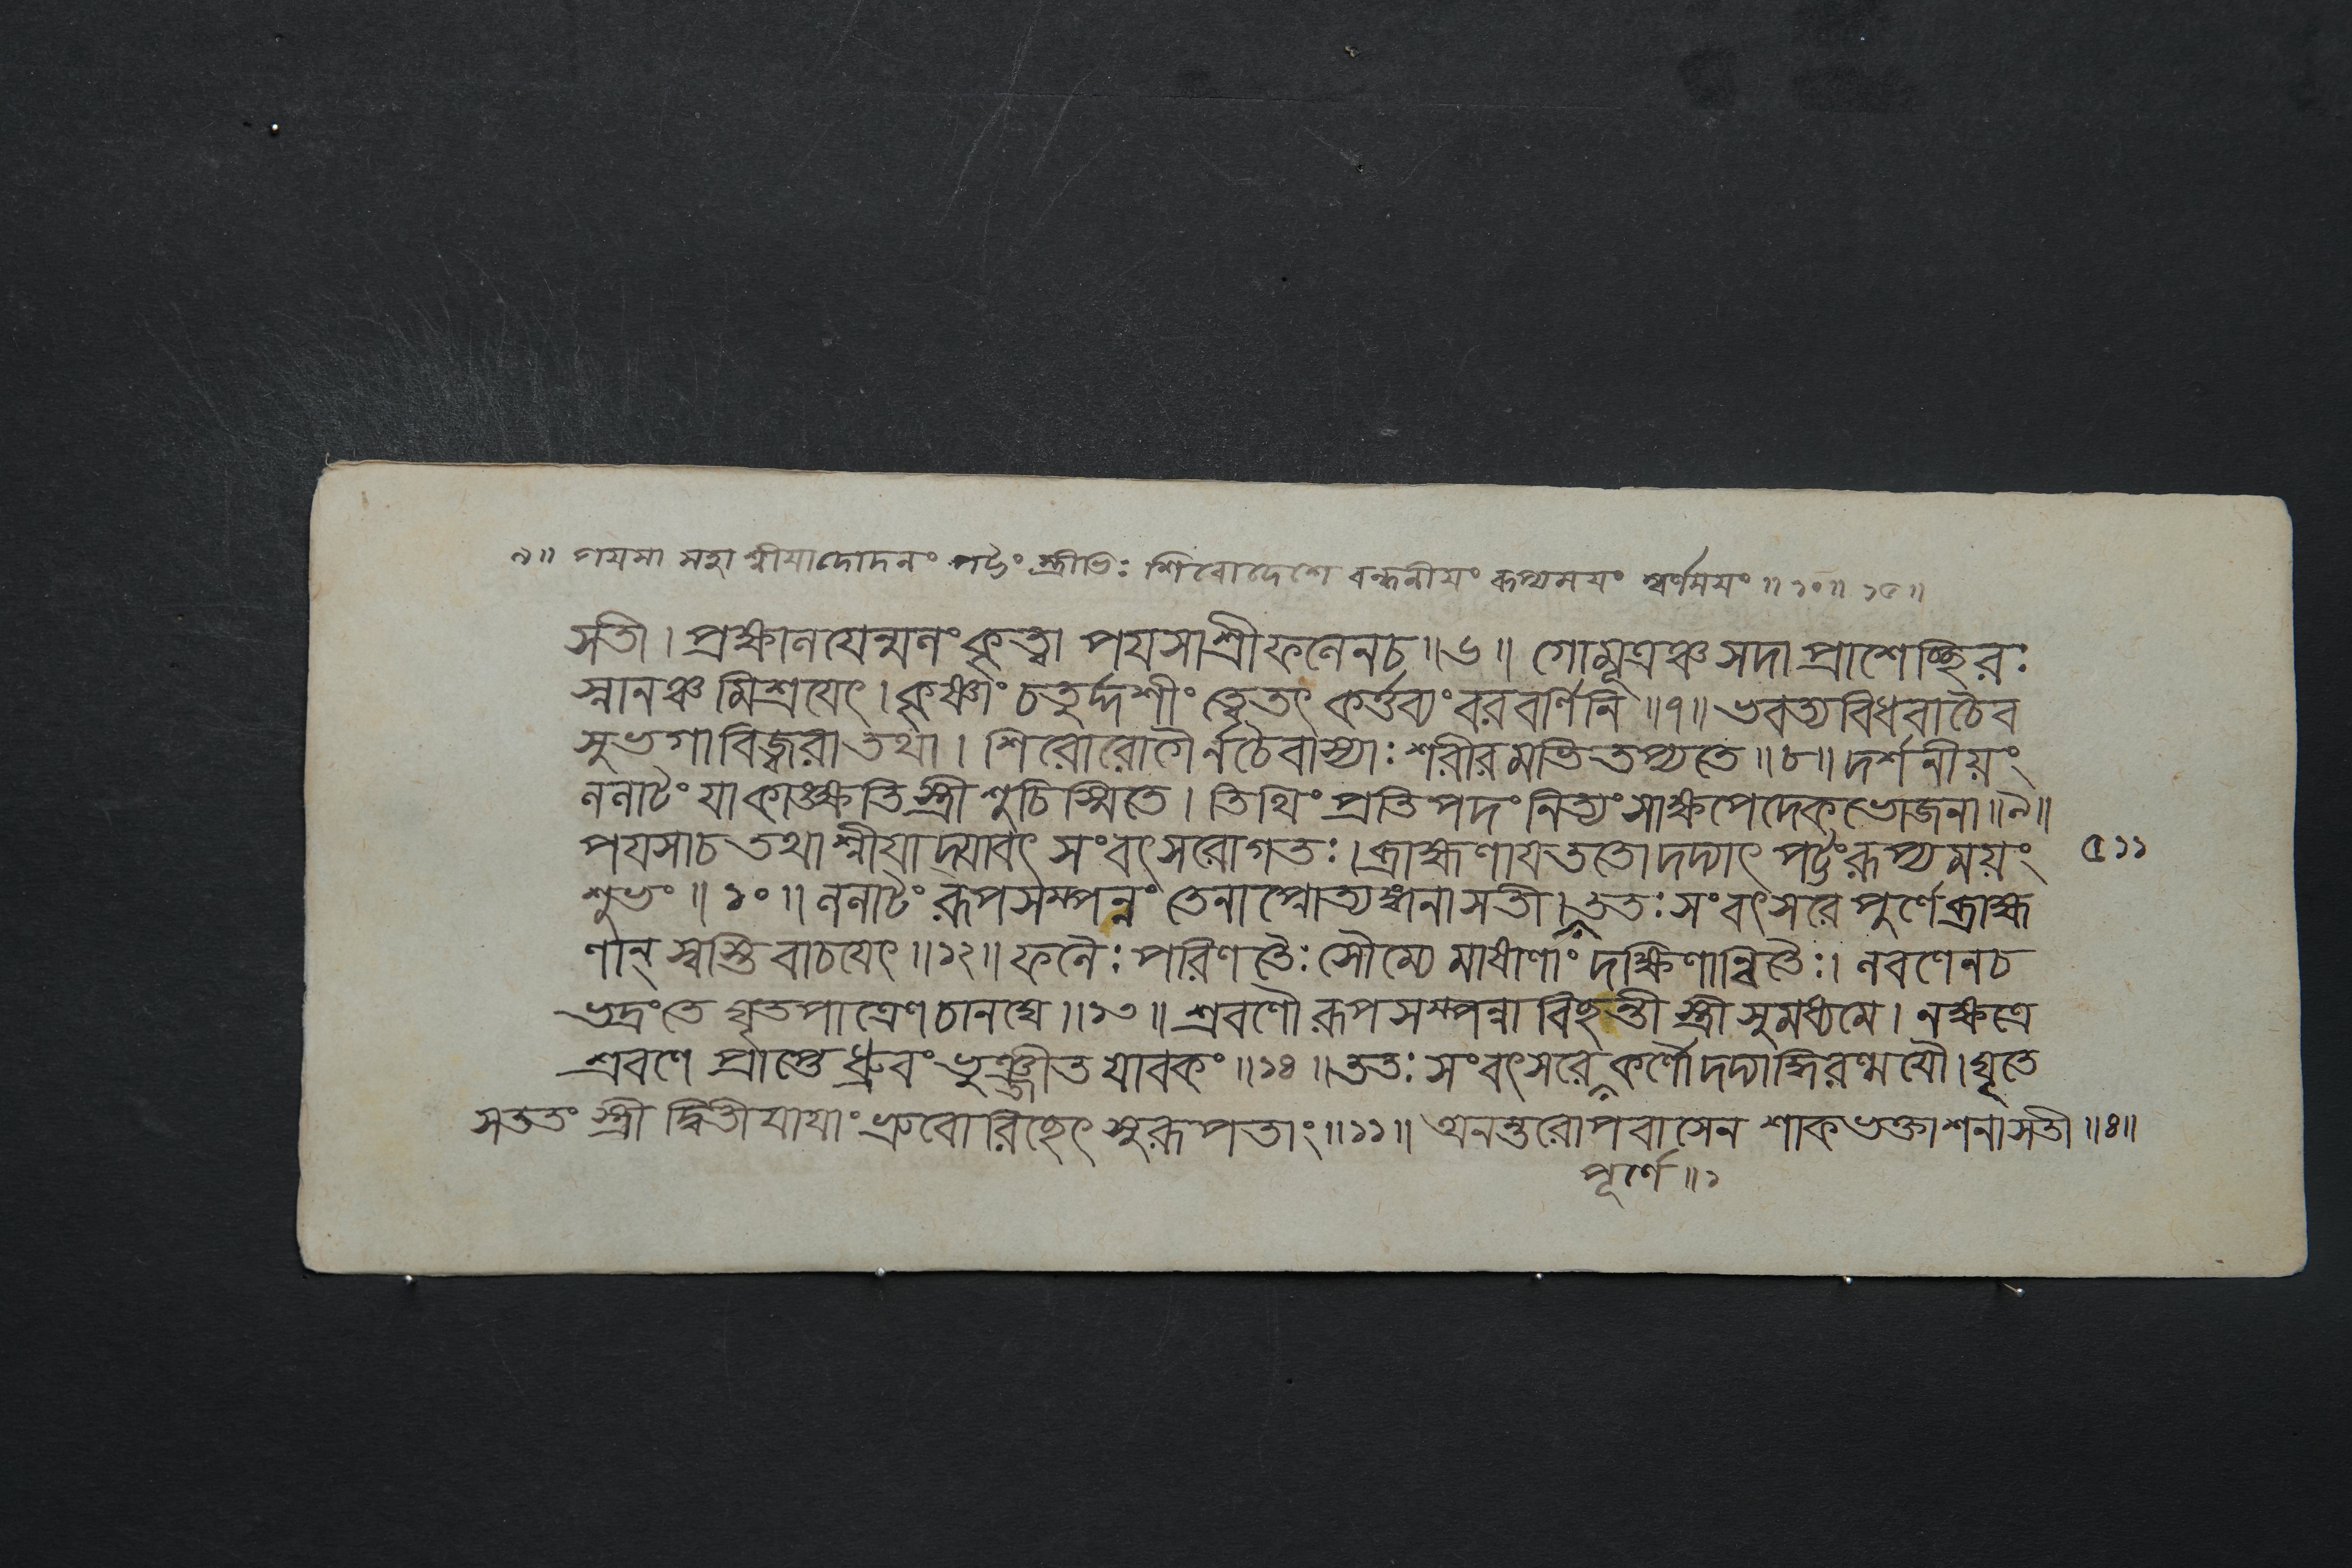 ৯॥ পয়সা সহাশ্নীয়াদোদনং পট্টং স্ত্রীভিঃ শিরোদেশে বন্ধনীয়ং রূপ্যময়ং স্বর্ণময়ং ॥১০॥ ১৫॥
সতী। প্রক্ষালয়েন্মলং কৃত্বা পয়সা শ্রীফলেন চ ॥৬॥ গোমূত্রঞ্চ সদা প্রাশেচ্ছিরঃ
স্নানঞ্চ মিশ্রয়েৎ। কৃষ্ণাং চতুর্দ্দশীং ত্বেতৎ কর্ত্তব্যং বরবর্ণিনি ॥৭॥ ভবত্যবিধবা চৈব
সুভগা বিজ্বরা তথা। শিরোরোগৈর্ন চৈবাস্যাঃ শরীরমভিতপ্যতে ॥৮॥ দর্শনীয়ং
ললাটং যা কাঙ্ক্ষতি স্ত্রী শুচিস্মিতে। তিথিং প্রতিপদং নিত্যং সা ক্ষপেদেকভোজনা ॥৯॥
পয়সা চ তথাশ্নীয়াদ্যাবৎ সংবৎসরো গতঃ। ব্রাহ্মণায় ততো দদ্যাৎ পট্টং রূপ্যময়ং
৫১১
শুভং ॥১০॥ ললাটং রূপসম্পন্নং তেনাপ্নোত্যঙ্গনা সতী। ততঃ সংবৎসরে পূর্ণে ব্রাহ্ম
ণান্ স্বস্তি বাচয়েৎ ॥১২॥ ফলৈঃ পরিণতৈঃ সৌম্যে মাষাণাং দক্ষিণান্বিতৈঃ। লবণেন চ
ভদ্রং তে ঘৃতপাত্রেণ চানঘে ॥১৩॥ শ্রবণৌ রূপসম্পন্না বিছন্তী স্ত্রী সুমধ্যমে। নক্ষত্রে
শ্রবণে প্রাপ্তে ধ্রুবং ভুঞ্জীত যাবকং ॥১৪॥ ততঃ সংবৎসরে কর্ণৌ দদ্যাদ্ধিরণ্ময়ৌ। ঘৃতে
সততং স্ত্রী দ্বিতীয়ায়াং ভ্রুবোরিছেৎ সুরূপতাং ॥১১॥ অনন্তরোপবাসেন শাকভক্তাশনা সতী ॥৪॥
পূর্ণে ॥১